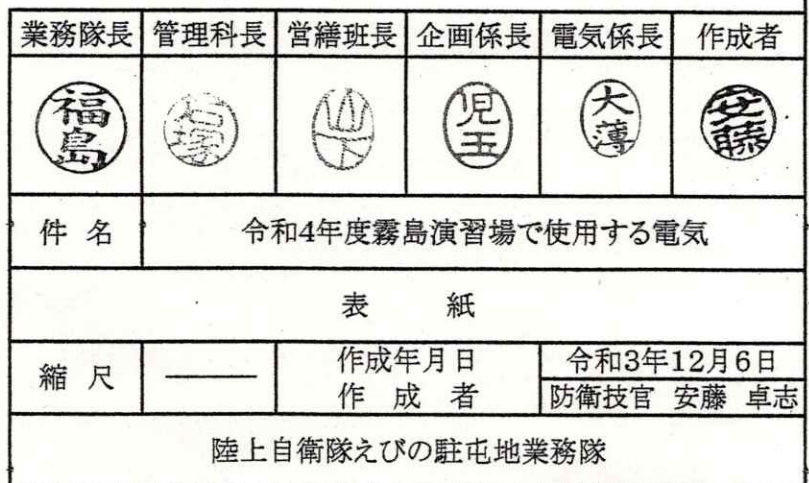 業務隊長 管理科長 営繕班長 企画係長 電気係長 作成者
福島 石塚 山下 児玉 大薄 安藤
件 名 令和4年度霧島演習場で使用する電気
表 紙
縮 尺 ――― 作成年月日 令和3年12月6日
作 成 者 防衛技官 安藤 卓志
陸上自衛隊えびの駐屯地業務隊